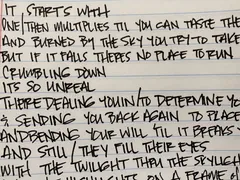 IT STARTS WITH
ONE/THEN MULTIPLIES TIL YOU CAN TASTE THE
AND BURNED BY THE SKY YOU TRY TO TAKE
BUT IF IT FALLS THERES NO PLACE TO RUN
CRUMBLING DOWN
ITS SO UNREAL
THEIRE DEALING YOU IN/TO DETERMINE YO
& SENDING YOU BACK AGAIN TO PLACE
AND BENDING YOUR WILL TIL IT BREAKS
AND STILL/THEY FILL THEIR EYES
WITH THE TWILIGHT THRU THE SKYLIGH
ON A FRAME OF